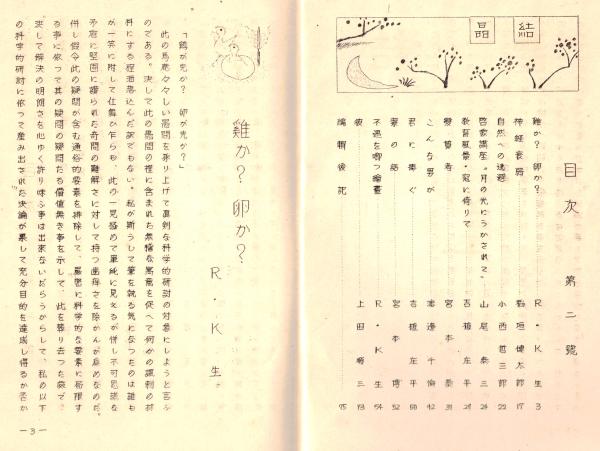 結晶
目次 第二號
鶏か?卵か? R・K生 3
神経衰弱 稲垣健太郎 17
自然への逃避 小西哲三郎 22
啓蒙講座"月の光にうかされて" 山尾泰三 24
教育風景・窓に倚りて 吉穂左平 29
宮本 31
こんな男が 渡邊千衛 42
君に捧ぐ 吉穂左平 50
宮本 52
不遇を啣つ繪畫 R・K生 54
彼 上田 三 73
編輯後記 95
鶏か?卵か?
R・K生
「鶏が先か? 卵が先か?」
此の馬鹿々々しい愚問を取り上げて真剣な科学的研討の対象にしようと言ふ
のである。決して此の愚問の裡に含まれた無稽な寓意を促へて何かの諷刺の材
料にする程洒落込んだ訳でもない。私が斯うして筆を執る気になつたのは誰も
が一笑に附して仕舞ひ乍らも、此の一見極めて単純に見えるが併し不可思議な
矛盾に堅固に護られた奇問の難解さに対して持つ歯痒さを除かんが為めなのだ。
併し假令此の疑問が含む通俗的要素を排除して、厳密に科学的な要素に局限す
る事に依つて其の疑問の疑問たる價値無き事を示して、此を葬り去つた處で、
決して解決の明朗さを心ゆく許り味ふ事は出来ないだらうからして、私の以下
の科学的研討に依つて産み出された決論が果して充分目的を達成し得るか否か
—3—